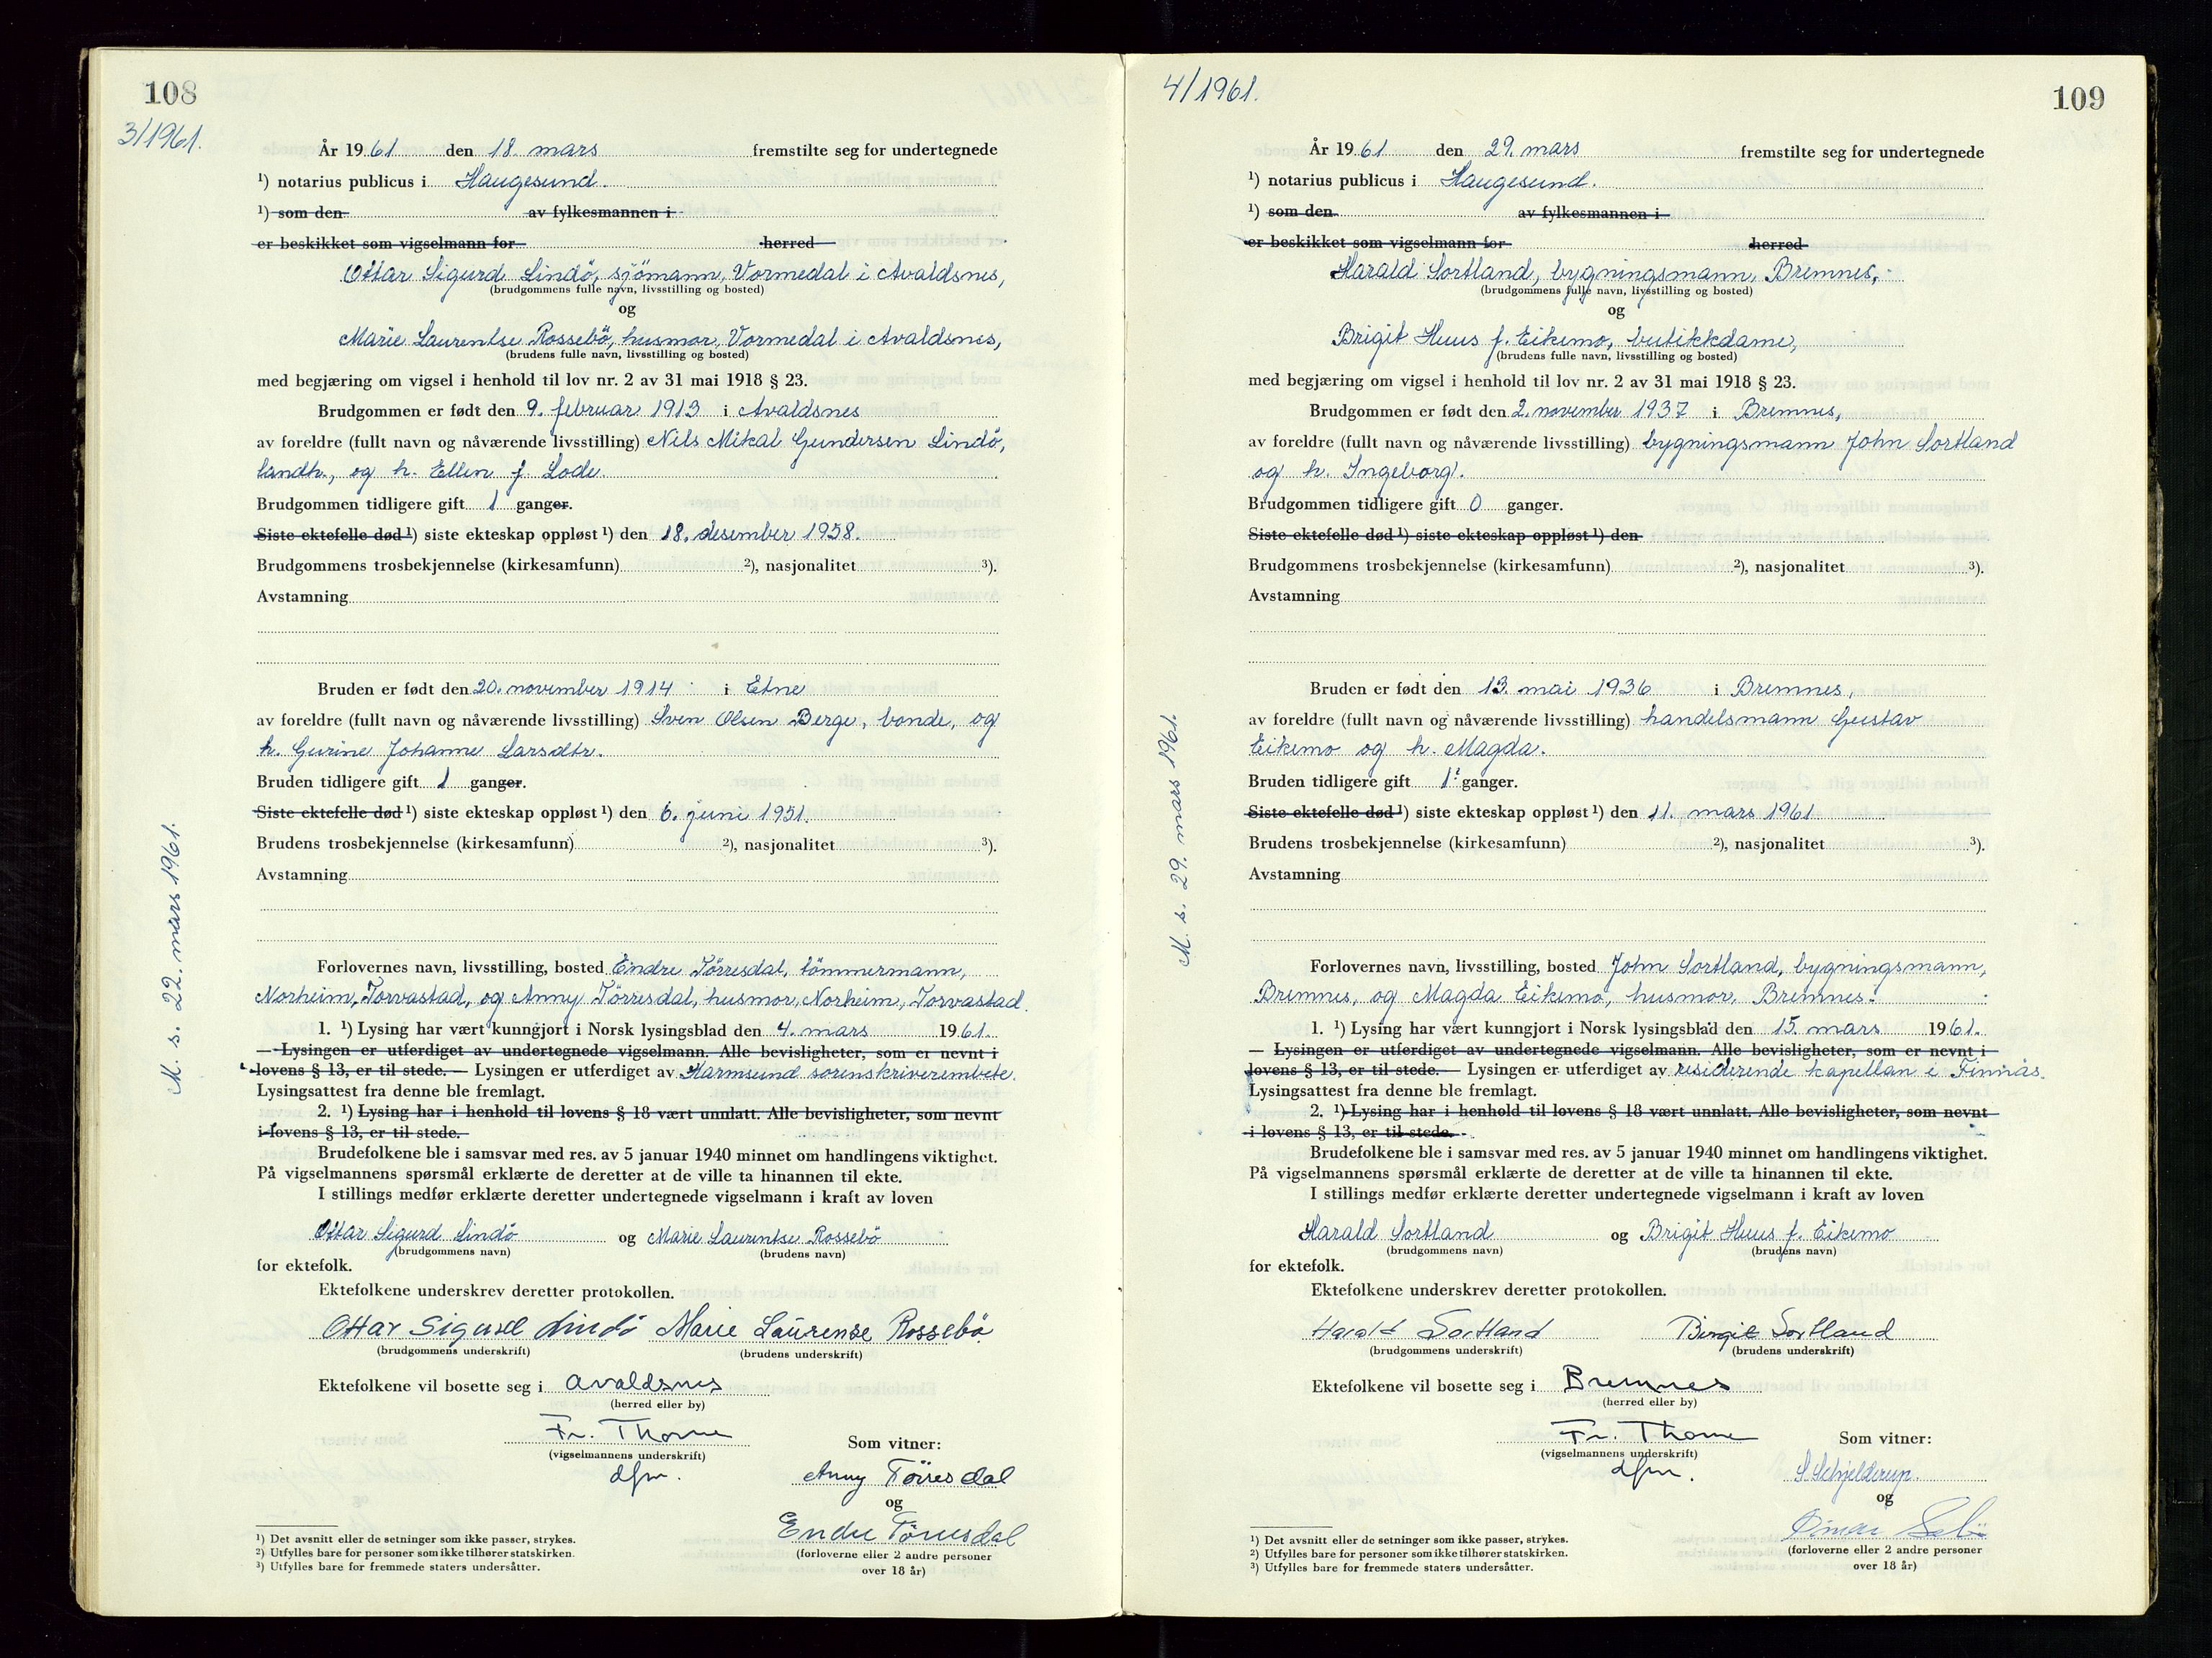 108
3/1961.
År 1961 den 18. mars fremstilte seg for undertegnede
¹) notarius publicus i Haugesund.
¹) som den av fylkesmannen i
er beskikket som vigselmann for herred
Ottar Sigurd Lindö, sjömann, Vormedal i Avaldsnes,
(brudgommens fulle navn, livsstilling og bosted)
og
Marie Laurentse Rossebö, husmor, Vormedal i Avaldsnes,
(brudens fulle navn, livsstilling og bosted)
med begjæring om vigsel i henhold til lov nr. 2 av 31 mai 1918 § 23.
Brudgommen er født den 9. februar 1913 i Avaldsnes
av foreldre (fullt navn og nåværende livsstilling) Nils Mikal Gundersen Lindö,
landh., og h. Ellen f. Lode.
Brudgommen tidligere gift 1 ganger.
Siste ektefelle død ¹) siste ekteskap oppløst ¹) den 18. desember 1958.
Brudgommens trosbekjennelse (kirkesamfunn) ²), nasjonalitet ³).
Avstamning
Bruden er født den 20. november 1914 i Etne
av foreldre (fullt navn og nåværende livsstilling) Sven Olsen Berge, bonde, og
h. Gurine Johanne Larsdtr.
Bruden tidligere gift 1 ganger.
Siste ektefelle død ¹) siste ekteskap oppløst ¹) den 6. juni 1951.
Brudens trosbekjennelse (kirkesamfunn) ²), nasjonalitet ³).
Avstamning
M. s. 22. mars 1961.
Forlovernes navn, livsstilling, bosted Endre Törresdal, tömmermann,
Norheim, Torvastad, og Anny Törresdal, husmor, Norheim, Torvastad.
1. ¹) Lysing har vært kunngjort i Norsk lysingsblad den 4. mars 1961.
— Lysingen er utferdiget av undertegnede vigselmann. Alle bevisligheter, som er nevnt i
lovens § 13, er til stede. — Lysingen er utferdiget av Karmsund sorenskriverembete.
Lysingsattest fra denne ble fremlagt.
2. ¹) Lysing har i henhold til lovens § 18 vært unnlatt. Alle bevisligheter, som nevnt
i lovens § 13, er til stede.
Brudefolkene ble i samsvar med res. av 5 januar 1940 minnet om handlingens viktighet.
På vigselmannens spørsmål erklærte de deretter at de ville ta hinannen til ekte.
I stillings medfør erklærte deretter undertegnede vigselmann i kraft av loven
Ottar Sigurd Lindö og Marie Laurentse Rossebö
(brudgommens navn) (brudens navn)
for ektefolk.
Ektefolkene underskrev deretter protokollen.
Ottar Sigurd Lindö Marie Laurense Rossebö
(brudgommens underskrift) (brudens underskrift)
Ektefolkene vil bosette seg i Avaldsnes
(herred eller by)
Fr. Thorne
(vigselmannens underskrift) Som vitner:
dfm. Anny Törresdal
og
Endre Törresdal
(forloverne eller 2 andre personer
over 18 år)
¹) Det avsnitt eller de setninger som ikke passer, strykes.
²) Utfylles bare for personer som ikke tilhører statskirken.
³) Utfylles bare for fremmede staters undersåtter.
4/1961.
109
År 1961 den 29. mars fremstilte seg for undertegnede
¹) notarius publicus i Haugesund.
¹) som den av fylkesmannen i
er beskikket som vigselmann for herred
Harald Sortland, bygningsmann, Bremnes,
(brudgommens fulle navn, livsstilling og bosted)
og
Brigit Huus f. Eikemo, butikkdame,
(brudens fulle navn, livsstilling og bosted)
med begjæring om vigsel i henhold til lov nr. 2 av 31 mai 1918 § 23.
Brudgommen er født den 2. november 1937 i Bremnes,
av foreldre (fullt navn og nåværende livsstilling) bygningsmann John Sortland
og h. Ingeborg.
Brudgommen tidligere gift 0 ganger.
Siste ektefelle død ¹) siste ekteskap oppløst ¹) den
Brudgommens trosbekjennelse (kirkesamfunn) ²), nasjonalitet ³).
Avstamning
Bruden er født den 13. mai 1936 i Bremnes,
av foreldre (fullt navn og nåværende livsstilling) handelsmann Gustav
Eikemo og h. Magda.
Bruden tidligere gift 1 ganger.
Siste ektefelle død ¹) siste ekteskap oppløst ¹) den 11. mars 1961
Brudens trosbekjennelse (kirkesamfunn) ²), nasjonalitet ³).
Avstamning
M. s. 29. mars 1961
Forlovernes navn, livsstilling, bosted John Sortland, bygningsmann,
Bremnes, og Magda Eikemo, husmor, Bremnes.
1. ¹) Lysing har vært kunngjort i Norsk lysingsblad den 15. mars 1961.
— Lysingen er utferdiget av undertegnede vigselmann. Alle bevisligheter, som er nevnt i
lovens § 13, er til stede. — Lysingen er utferdiget av residerende kapellan i Finnås.
Lysingsattest fra denne ble fremlagt.
2. ¹) Lysing har i henhold til lovens § 18 vært unnlatt. Alle bevisligheter, som nevnt
i lovens § 13, er til stede.
Brudefolkene ble i samsvar med res. av 5 januar 1940 minnet om handlingens viktighet.
På vigselmannens spørsmål erklærte de deretter at de ville ta hinannen til ekte.
I stillings medfør erklærte deretter undertegnede vigselmann i kraft av loven
Harald Sortland og Brigit Huus f. Eikemo
(brudgommens navn) (brudens navn)
for ektefolk.
Ektefolkene underskrev deretter protokollen.
Harald Sortland Birgit Sortland
(brudgommens underskrift) (brudens underskrift)
Ektefolkene vil bosette seg i Bremnes
(herred eller by)
Fr. Thorne
(vigselmannens underskrift) Som vitner:
dfm. S Schjelderup.
og
(forloverne eller 2 andre personer
over 18 år)
¹) Det avsnitt eller de setninger som ikke passer, strykes.
²) Utfylles bare for personer som ikke tilhører statskirken.
³) Utfylles bare for fremmede staters undersåtter.